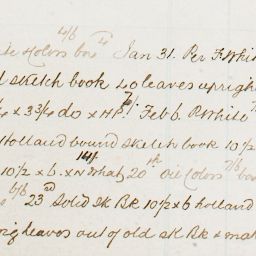 4/6
Colors box Jan 31. Per F. Whi
sketch book 40 leaves uprigh
x 3 3/4 do x H.P. 7/ Feb 6. P. White
Holland bound sketch book 10 1/2
14/
10 1/2 x 6. x N What, 20th Oil Colors 7/6 box
6/6 23rd Solid SK BK 10 1/2 x 6 holland
leaves out of old SK BK & mak